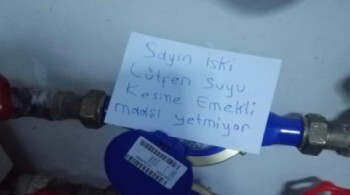 Sayın İski
Lütfen Suyu
Kesme Emekli
maaşı yetmiyor